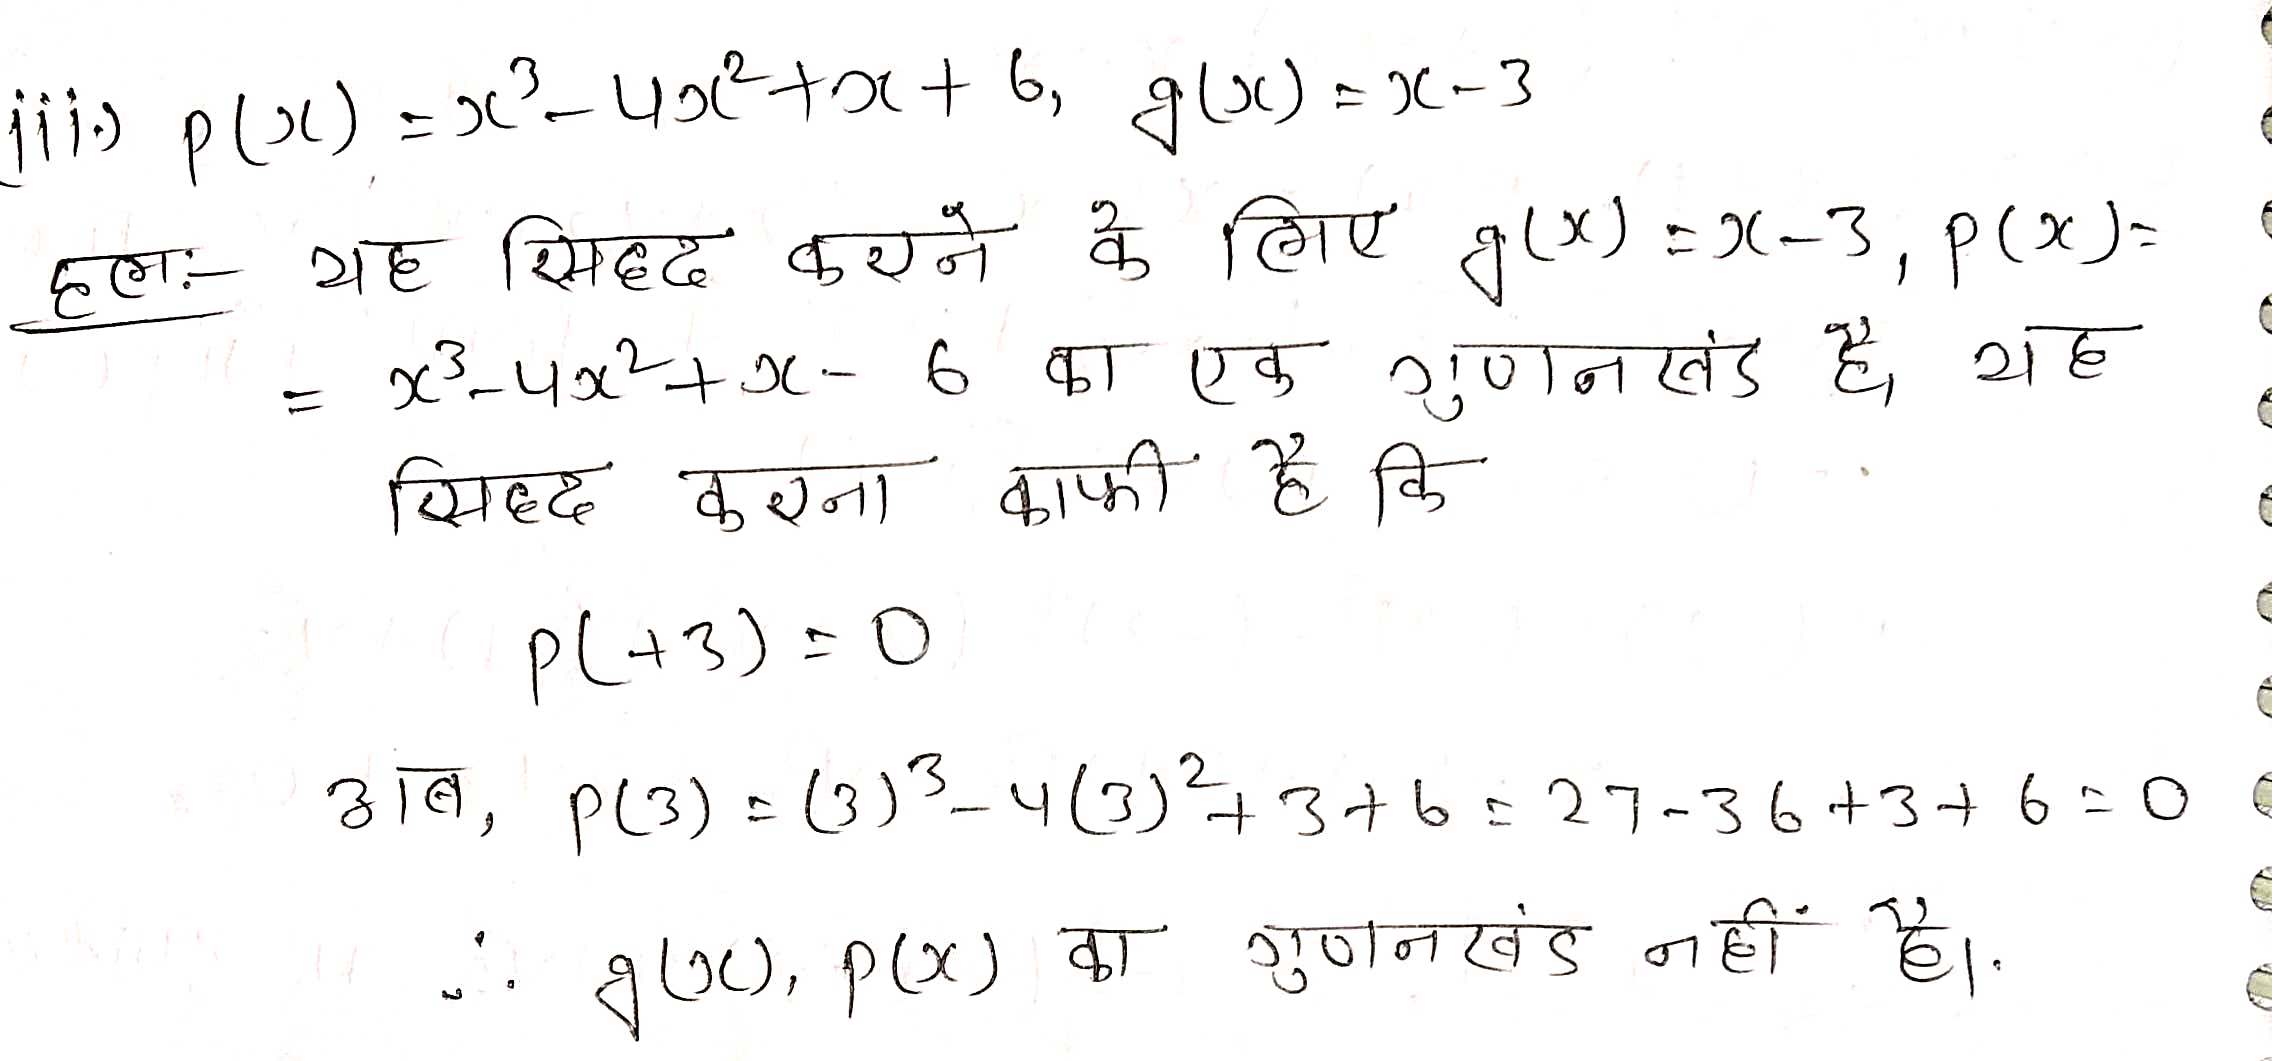 iii) p(x) = x³ - 4x² + x + 6, g(x) = x - 3
हल:- यह सिद्द करने के लिए g(x) = x - 3, p(x) =
= x³ - 4x² + x - 6 का एक गुणनखंड है, यह
सिद्द करना काफी है कि
p(+3) = 0
अब, p(3) = (3)³ - 4(3)² + 3 + 6 = 27 - 36 + 3 + 6 = 0
∴ g(x), p(x) का गुणनखंड नहीं है।.